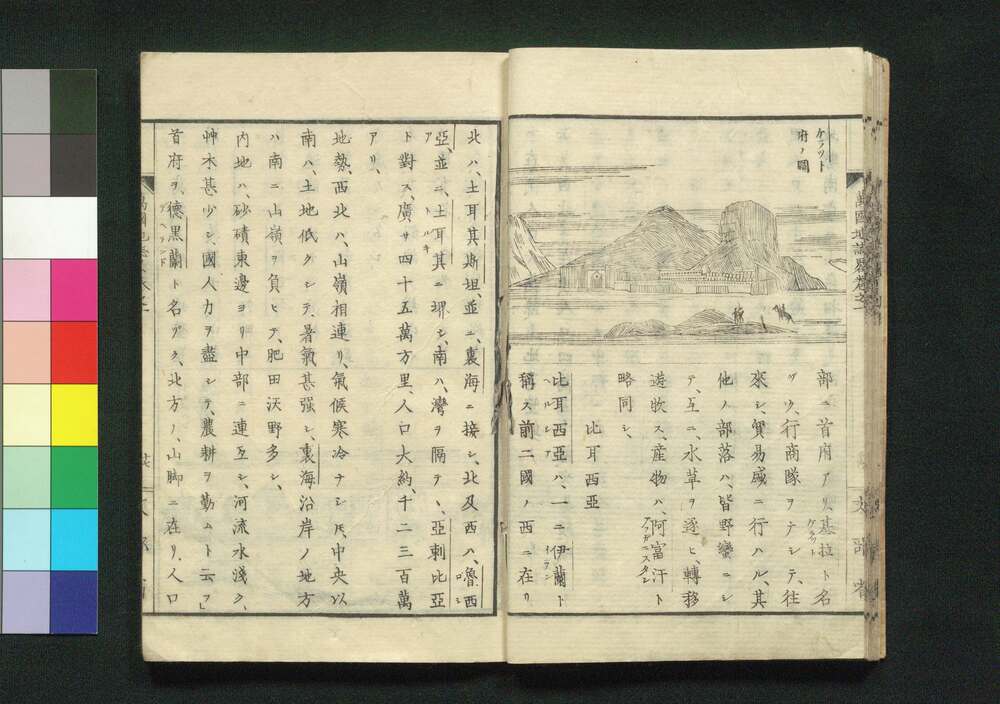 ケラツト
府ノ圖
部ニ首府アリ、基拉ト名
ヅク、行商隊ヲナシテ、往
來シ、貿易盛ニ行ハル、其
他ノ部落ハ、皆野蠻ニシ
テ、互ニ、水草ヲ逐ヒ、轉移
遊牧ス、産物ハ、阿富汗ト
略同シ、
比耳西亞
比耳西亞ハ、一ニ伊蘭ト
稱ス前二國ノ西ニ在リ
北ハ、土耳其斯坦、並ニ、裏海ニ接シ、北及西ハ、魯西
亞、並ニ、土耳其ニ堺シ、南ハ、灣ヲ隔テヽ、亞剌比亞
ト對ス、廣サ四十五萬方里、人口大約、千二三百萬
アリ、
地勢、西北ハ、山嶺相連リ、氣候寒冷ナシ𪜈、中央以
南ハ、土地低クシテ、暑氣甚強シ、裏海沿岸ノ地方
ハ南ニ山嶺ヲ負ヒテ、肥田沃野多シ、
内地ハ、砂磧東邊ヨリ中部ニ連亙シ、河流水淺ク、
艸木甚少シ、國人力ヲ盡シテ、農耕ヲ勤ムト云フ、
首府ヲ、德黑蘭ト名ヅク、北方ノ、山脚ニ在リ、人口